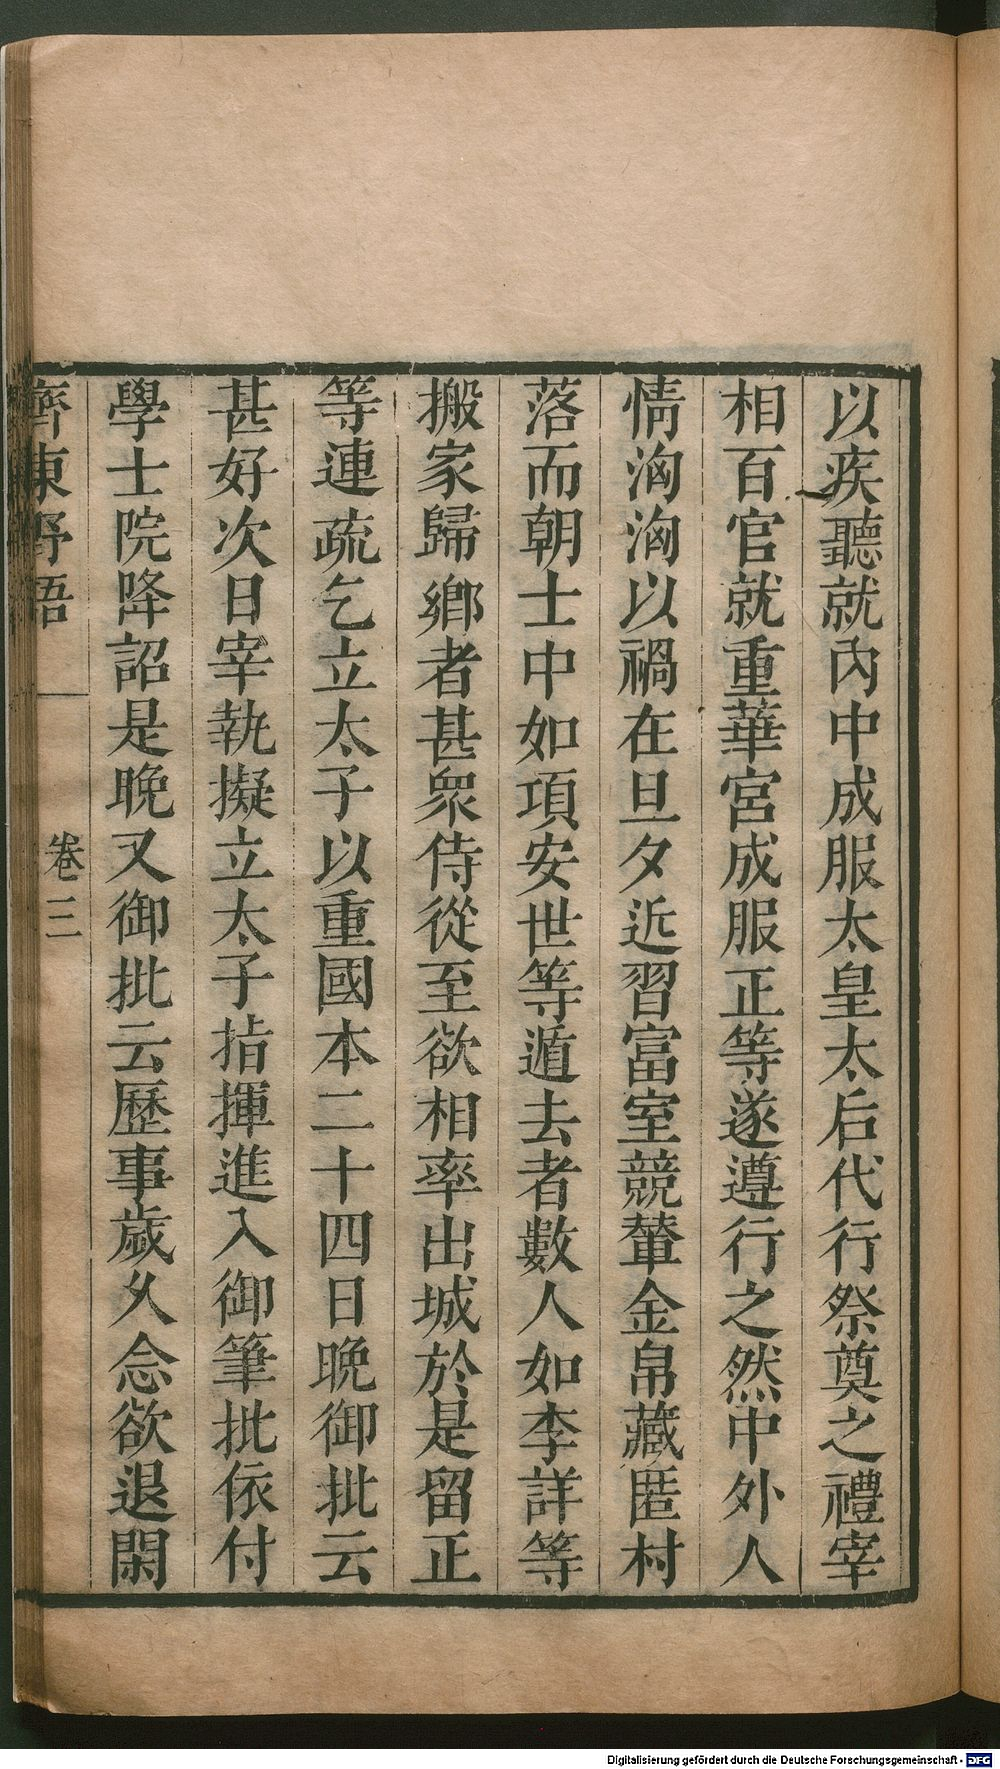 以疾聽就內中成服太皇太后代行祭奠之禮宰
相百官就重華宮成服正等遂遵行之然中外人
情洶洶以禍在旦夕近習富室競輦金帛藏匿村
落而朝士中如項安世等遁去者數人如李詳等
搬家歸鄉者甚衆侍從至欲相率出城於是留正
等連疏乞立太子以重國本二十四日晚御批云
甚好次日宰執擬立太子指揮進入御筆批依付
學士院降詔是晚又御批云歷事歲久念欲退閑
齊東野語
卷三
Digitalisierung gefördert durch die Deutsche Forschungsgemeinschaft - DFG